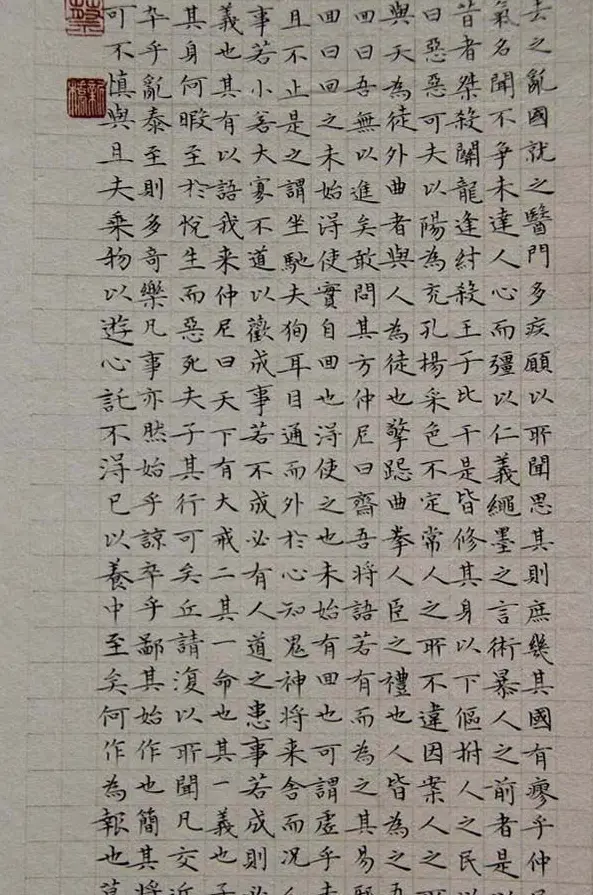 去之亂國就之醫門多疾願以所聞思其則庶幾其國有瘳乎仲
氣名聞不爭未達人心而彊以仁義繩墨之言術暴人之前者是
昔者桀殺關龍逢紂殺王子比干是皆修其身以下傴拊人之民以
曰惡惡可夫以陽為充孔揚采色不定常人之所不違因案人之所
與天為徒外曲者與人為徒也擎跽曲拳人臣之禮也人皆為之吾
回曰吾無以進矣敢問其方仲尼曰齋吾將語若有而為之其易
回曰回之未始得使實自回也得使之也未始有回也可謂虛乎夫
且不止是之謂坐馳夫狥耳目通而外於心知鬼神將来舍而況人
事若小若大寡不道以歡成事若不成必有人道之患事若成則必
義也其有以語我来仲尼曰天下有大戒二其一命也其一義也子
其身何暇至於悅生而惡死夫子其行可矣丘請復以所聞凡交近
卒乎亂泰至則多奇樂凡事亦然始乎諒卒乎鄙其始作也簡其將
可不慎與且夫乘物以遊心託不得已以養中至矣何作為報也莫